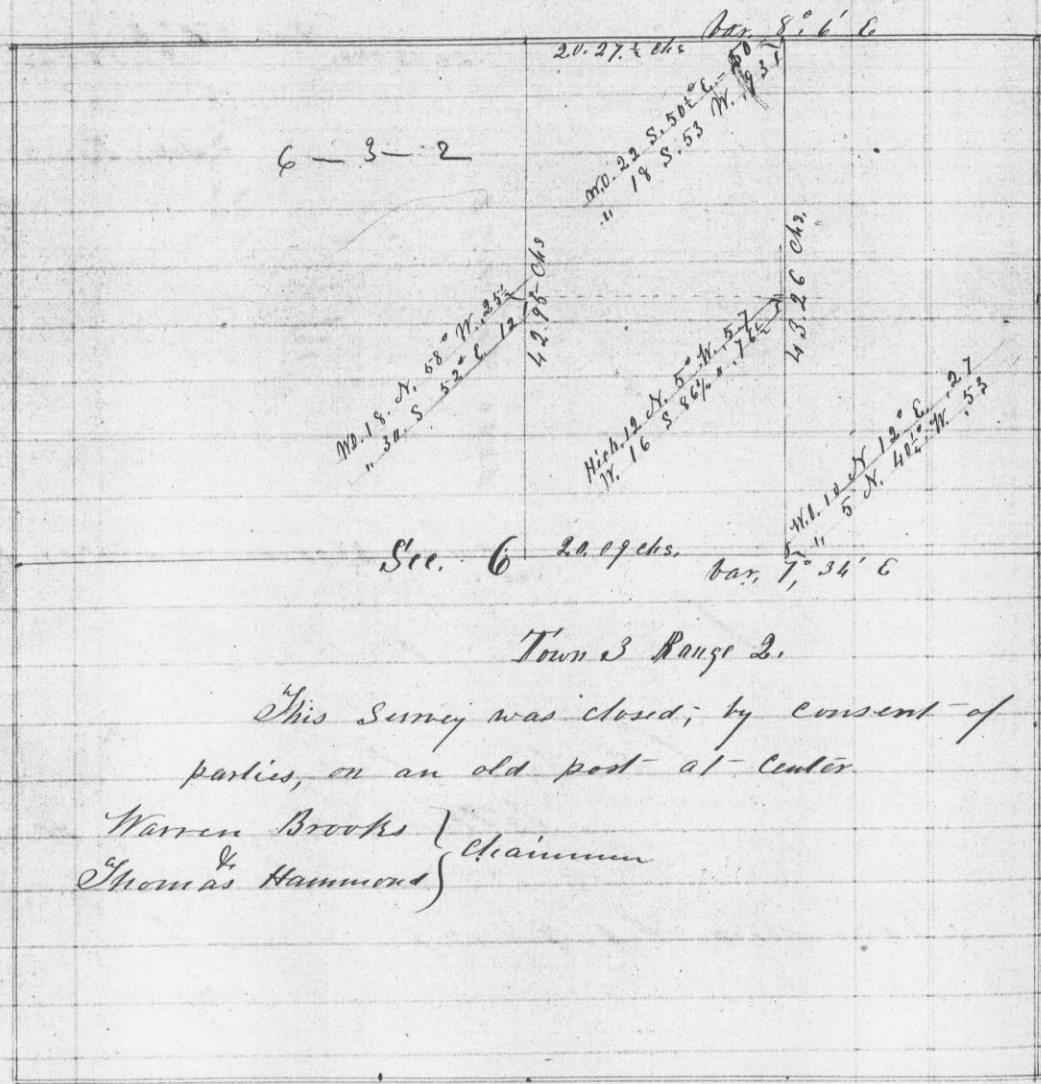 bar. 8° 6' E
20.27.½ chs
W.O. 22 S. 50½° E. 50
" 18 S. 53 W. .93½
6 — 3 — 2
43.26 Chs.
42.95 Chs
W.O. 18. N. 58° W. .25½
" 30. S 52° E. 12½
Hick. 12 N. 5° W. .57
W. 16 S 86½ " .76½
W.O. 10 N 12° E. .27
" 5 N. 40¼° W. .53
Sec. 6
20.09 chs.
bar. 7° 34' E
Town 3 Range 2.
This Survey was closed; by consent of
parties, on an old post at Center
Warren Brooks
&
Thomas Hammond
Chainmen